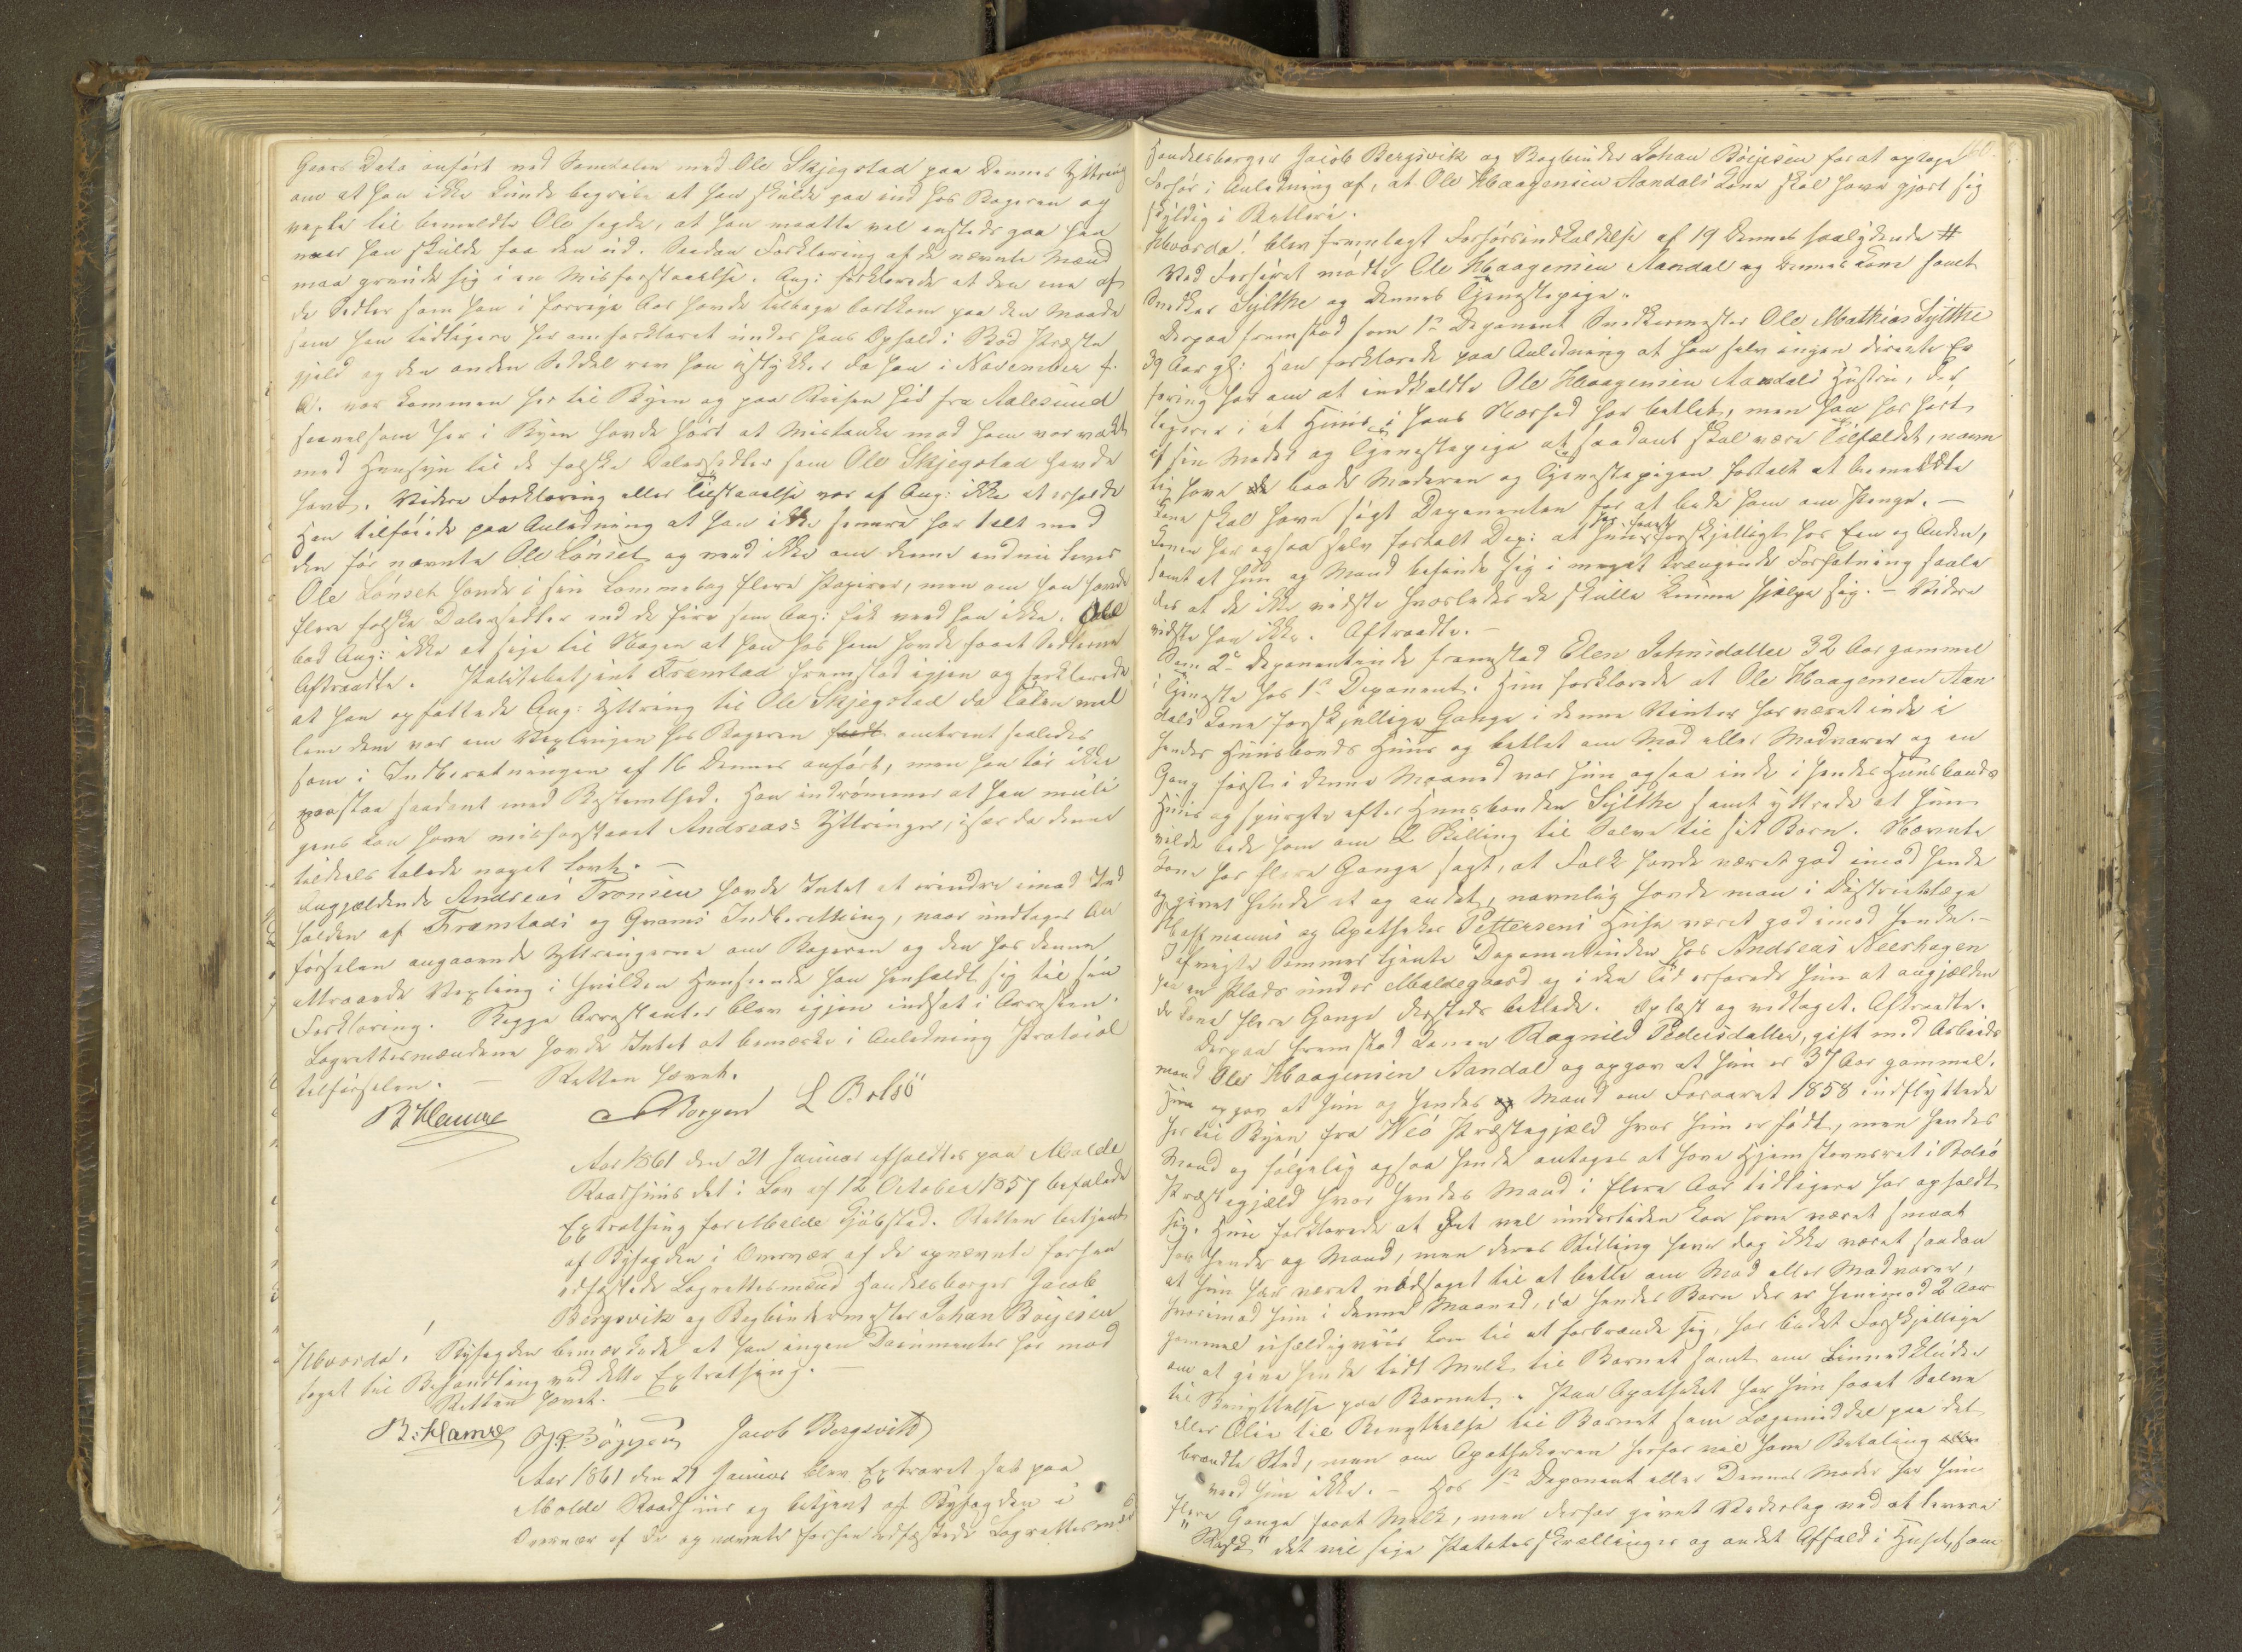 Gaars Dato anført ved Samtalen med Ole Skjegstad paa Dennes Yttring
om at han ikke kunde begribe at han skulde gaa ind hos Bageren og
vexle til bemeldte Ole sagde, at han maatte vel ensteds gaa hen
naar han skulde faa den ud. Saadan Forklaring af de nævnte Mænd
maa grunde sig i en Misforstaaelse. Ang: forklarede at den ene af
de Sedler som han i forrige Aar havde tilbage bortkom paa den Maade
som han tidligere har omforklaret under hans Ophold i Bod Præste
gjeld og den anden Seddel rev han istykker da han i November f.
A. var kommen her til Byen og paa Reisen hid fra Aalesund
saavelsom her i Byen havde hørt at Mistanke mod ham var vakt
med Hensyn til de falske Dalersedler som Ole Skjegstad havde
havt. Videre Forklaring eller Tilstaaelse var af Ang: ikke at erholde
Han tilføiede paa Anledning at han ikke senere har talt med
den før nævnte Ole Lønset og veed ikke om denne endnu lever
Ole Lønset havde i sin Lommebog flere Papirer, men om han havde
flere falske Dalersedler end de fire som Ang: fik veed han ikke. Ole
bad Ang: ikke at sige til Nogen at han hos ham havde faaet Sedlerne
Aftraadte. Politibetjent Framstad fremstod igjen og forklarede
at han opfattede Ang: Yttring til Ole Skjegstad da Talen mel
lem dem var om Vexlingen hos Bageren omtrent saaledes
som i Indberetningen af 16 Dennes anført, men han tør ikke
paastaa saadant med Bestemthed. Han indrømmer at han muli
gens kan have misforstaaet Andreas's Yttringer, især da denne
tildels talede noget lavt. —
Angjældende Andreas Tronsen havde Intet at erindre imod Ind
holden af Framstads og Grams Indberetning, naar undtages An
førselen angaaende Yttringerne om Bageren og den hos denne
attraaede Vexling i hvilken Henseende han henholdt sig til sin
Forklaring. Begge Arrestanter blev igjen indsat i Arresten.
Lagrettesmændene havde Intet at bemærke i Anledning Protocol
tilførselen. — Retten hævet.
B. Hamre Borgen L Bolsö
Aar 1861 den 21 Januar afholdtes paa Molde
Raadhuus det i Lov af 12 October 1857 befalede
Extrathing for Molde Kjøbstad. Retten betjent
af Byfogden i Overvær af de opnævnte forhen
edfæstede Lagrettesmænd Handelsborger Jacob
Bergsvik og Bogbindermester Johan Böyesen
Hvorda! Byfogden bemærkede at han ingen Documenter har mod
taget til Behandling ved dette Extrathing. —
Retten hævet. —
B: Hamre J. Böyesen Jacob Bergsvik
Aar 1861 den 21 Januar blev Extraret sat paa
Molde Raadhuus og betjent af Byfogden i
Overvær af de opnævnte forhen edfæstede Lagrettesmænd
Handelsborger Jacob Bergsvik og Bogbinder Johan Böiesen for at optage
Forhør i Anledning af, at Ole Haagensen Aandals Kone skal have gjort sig
skyldig i Betleri.
Hvorda! blev fremlagt Forhørsindkaldelse af 19 Dennes saalydende #
Ved Forhøret mødte Ole Haagensen Aandal og dennes Kone samt
Snedker Sylthe og dennes Tjenestepige.
Derpaa fremstod som 1ste Deponent Snedkermester Ole Mathias Sylthe
39 Aar gl: Han forklarede paa Anledning at han selv ingen directe Er
faring har om at indkaldte Ole Haagensen Aandals Hustru, der
logerer i et Huus i hans Nærhed har betlet, men han har hørt
af sin Moder og Tjenestepige at saadant skal være Tilfældet, navn
lig have baade Moderen og Tjenestepigen fortalt at bemeldte
Kone skal have søgt Deponenten for at bede ham om Penge. —
Konen har ogsaa selv fortalt Dep: at hun har faaet forskjelligt hos Een og Anden,
samt at hun og Mand befinde sig i meget trængende Forfatning saale
des at de ikke vidste hvorledes de skulle kunne hjælpe sig. — Videre
vidste han ikke. Aftraadte. —
Som 2de Deponentinde fremstod Elen Johnsdatter 32 Aar gammel
i Tjeneste hos 1ste Deponent. Hun forklarede at Ole Haagensen Aan
dals Kone forskjellige Gange i denne Vinter har været inde i
hendes Huusbonds Huus og betlet om Mad eller Madvarer og en
Gang først i denne Maaned var hun ogsaa inde i hendes Huusbonds
Huus og spurgte efter Huusbonden Sylthe samt yttrede at hun
vilde bede ham om 2 Skilling til Salve til sit Barn. Nævnte
Kone har flere Gange sagt, at Folk havde været god imod hende
og givet hende et og andet, navnlig havde man i Districtslæge
Hoffmanns og Apotheker Pettersens Huse været god imod hende. —
Afvigte Sommer tjente Deponentinden hos Andreas Neershagen
paa en Plads under Moldegaard og i den Tid erfarede hun at angjælden
de Kone flere Gange dersteds betlede. Oplæst og vedtaget. Aftraadte.
Derpaa fremstod Konen Ragnild Pedersdatter, gift med Arbeids
mand Ole Haagensen Aandal og opgav at hun er 37 Aar gammel.
Hun opgav at hun og hendes Mand om Foraaret 1858 indflyttede
her til Byen fra Veö Præstegjæld hvor hun er født, men hendes
Mand og følgelig ogsaa hende antages at have Hjemstavnsret i Bolsö
Præstegjæld hvor hendes Mand i flere Aar tidligere har opholdt
sig. Hun forklarede at det vel undertiden kan have været smaat
for hende og Mand, men deres Stilling have dog ikke været saadan
at hun har været nødsaget til at betle om Mad eller Madvarer,
hvorimod hun i denne Maaned, da hendes Barn der er henimod 2 Aar
gammel uheldigviis kom til at forbrænde sig, har budet Forskjellige
om at give hende lidt Melk til Barnet samt om Linnedklude
til Benyttelse paa Barnet. Paa Apotheket har hun faaet Salve
eller Olie til Benyttelse til Barnet som Lægemiddel paa det
brændte Sted, men om Apothekeren herfor vil have Betaling
veed hun ikke. — Hos 1ste Deponent eller Dennes Moder har hun
flere Gange faaet Melk, men derfor givet Vederlag ved at levere
det vil sige Potetesskrællinger og andet Affald i Huset, som